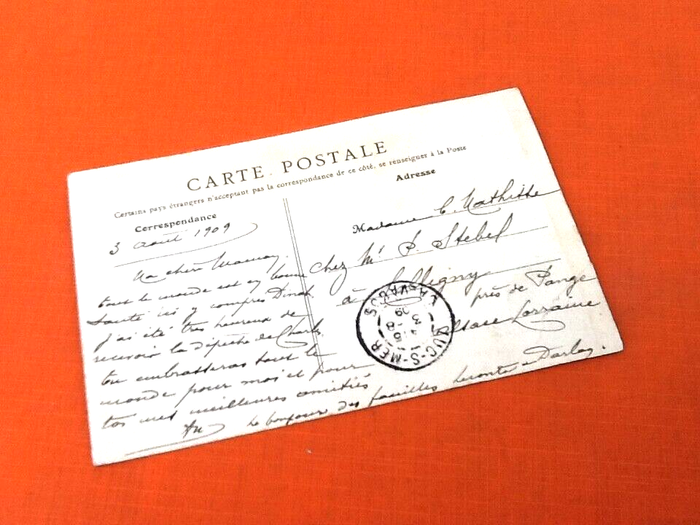 CARTE POSTALE
Certains pays étrangers n'acceptent pas la correspondance de ce côté, se renseigner à la Poste
Correspondance
Adresse
3 août 1909
Ma chère Maman,
tout le monde est en bonne
santé ici y compris
j'ai été très heureux de
recevoir la dépêche de Charles
tu embrasseras tout le
monde pour moi et pour
toi mes meilleures amitiés
Le bonjour des familles Leconte et Darlas.
Madame C. Mathis
chez Mr P. Stebel
à
près de Pange
Alsace Lorraine
LUC-S-MER
CALVADOS
3 -8
09